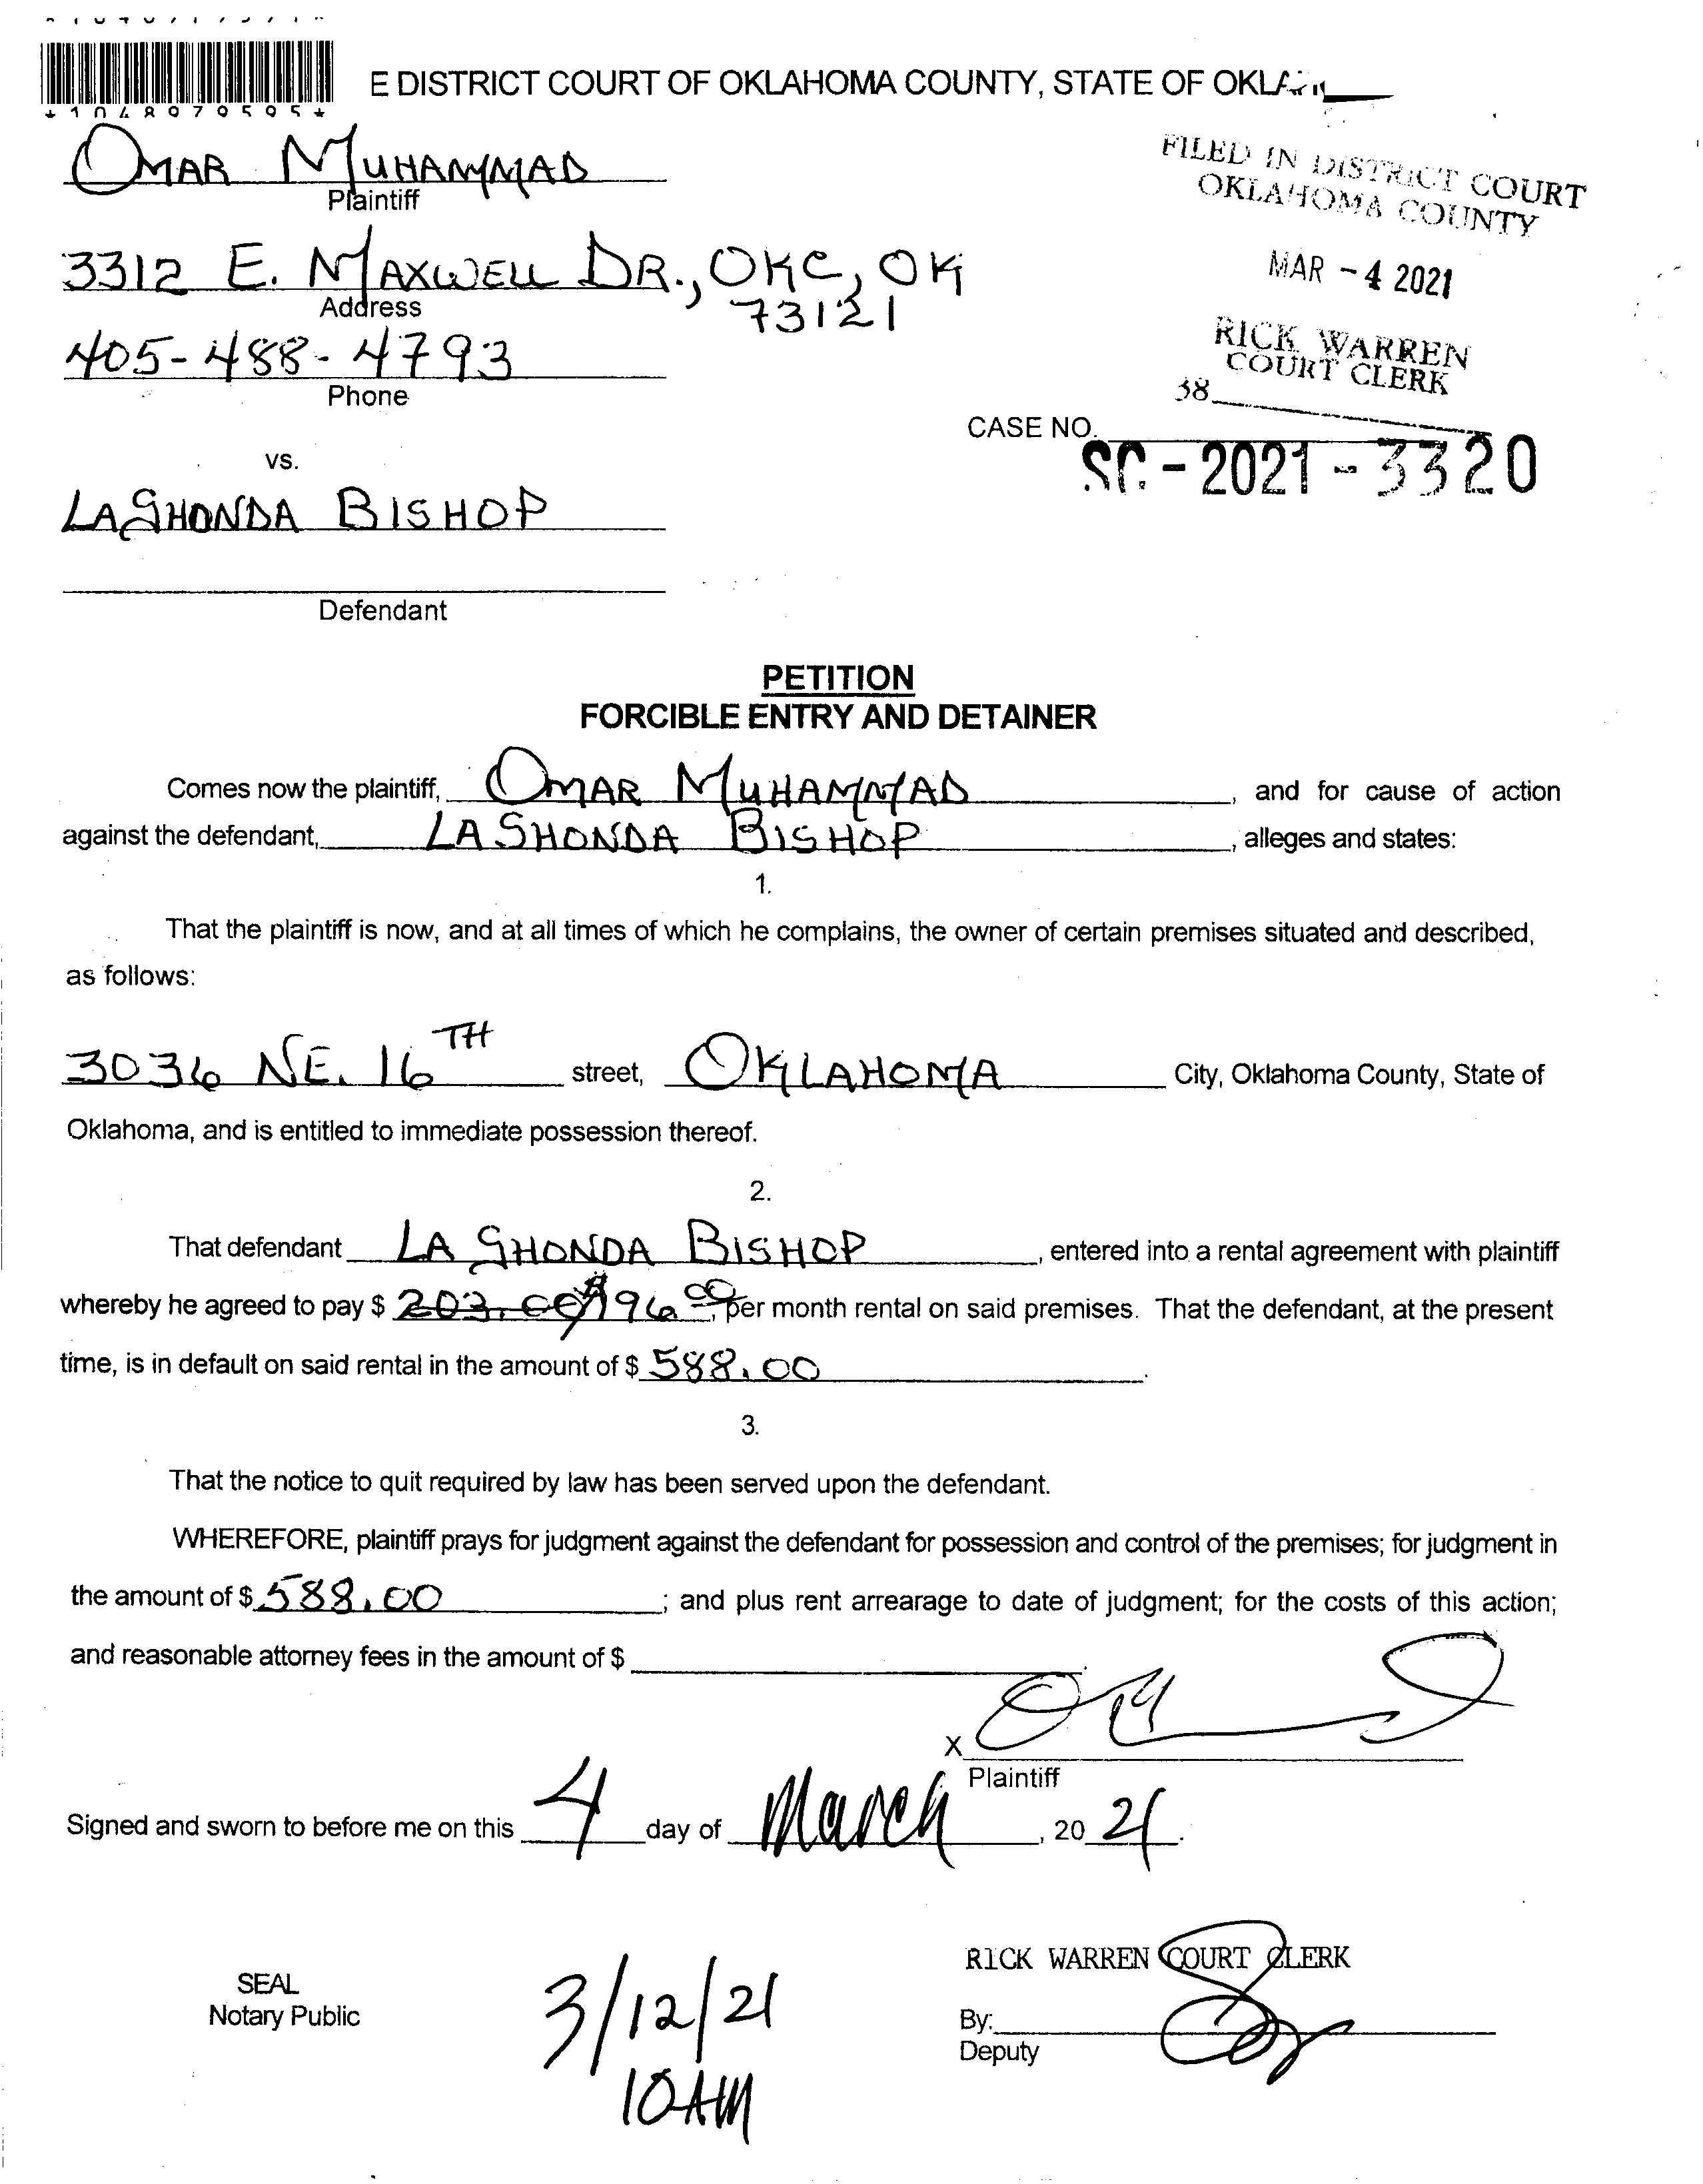 *1048979595*
E DISTRICT COURT OF OKLAHOMA COUNTY, STATE OF
OMAR MUHAMMAD
Plaintiff
3312 E. MAXWELL DR., OKC, OK
73121
Address
405-488-4793
Phone
FILED IN DISTRICT COURT
OKLAHOMA COUNTY
MAR - 4 2021
RICK WARREN
COURT CLERK
38
CASE NO.
SC - 2021 - 3320
vs.
LASHONDA BISHOP
Defendant
PETITION
FORCIBLE ENTRY AND DETAINER
Comes now the plaintiff, OMAR MUHAMMAD, and for cause of action
against the defendant, LA SHONDA BISHOP, alleges and states:
1.
That the plaintiff is now, and at all times of which he complains, the owner of certain premises situated and described,
as follows:
3036 NE. 16TH street, OKLAHOMA City, Oklahoma County, State of
Oklahoma, and is entitled to immediate possession thereof.
2.
That defendant LA SHONDA BISHOP, entered into a rental agreement with plaintiff
whereby he agreed to pay $ 203.00 $196.00, per month rental on said premises. That the defendant, at the present
time, is in default on said rental in the amount of $ 588.00.
3.
That the notice to quit required by law has been served upon the defendant.
WHEREFORE, plaintiff prays for judgment against the defendant for possession and control of the premises; for judgment in
the amount of $ 588.00; and plus rent arrearage to date of judgment; for the costs of this action;
and reasonable attorney fees in the amount of $
X
Plaintiff
Signed and sworn to before me on this 4 day of March, 2021.
RICK WARREN COURT CLERK
SEAL
Notary Public
3/12/21
10AM
By:
Deputy